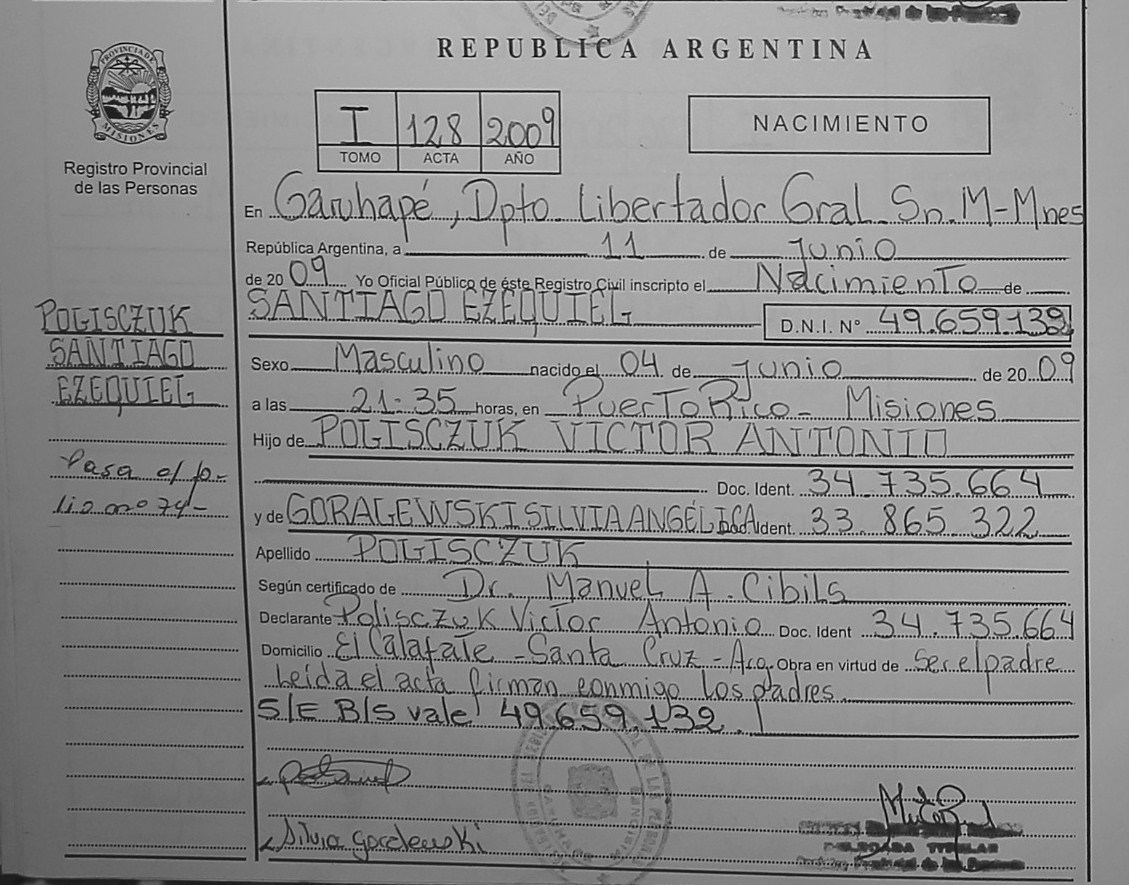 REPUBLICA ARGENTINA
PROVINCIA DE MISIONES
Registro Provincial
de las Personas
I 128 2009
TOMO ACTA AÑO
NACIMIENTO
En Garuhapé, Dpto. Libertador Gral. Sn. M-Mnes
República Argentina, a 11 de Junio
de 2009 Yo Oficial Público de éste Registro Civil inscripto el Nacimiento de
SANTIAGO EZEQUIEL D.N.I. N° 49.659.132
POLISCZUK
SANTIAGO
EZEQUIEL
Sexo Masculino nacido el 04 de Junio de 2009
a las 21:35 horas, en Puerto Rico - Misiones
Hijo de POLISCZUK VICTOR ANTONIO
Doc. Ident. 34.735.664
Pasa al fo-
lio nº 74-
y de GORALEWSKI SILVIA ANGÉLICA Doc. Ident. 33.865.322
Apellido POLISCZUK
Según certificado de Dr. Manuel A. Cibils
Declarante Polisczuk Victor Antonio Doc. Ident 34.735.664
Domicilio El Calafate - Santa Cruz - Arg. Obra en virtud de Ser el padre
Leída el acta firman conmigo los padres
S/E B/S vale 49.659.132.
Silvia Goralewski
DELEGADA TITULAR